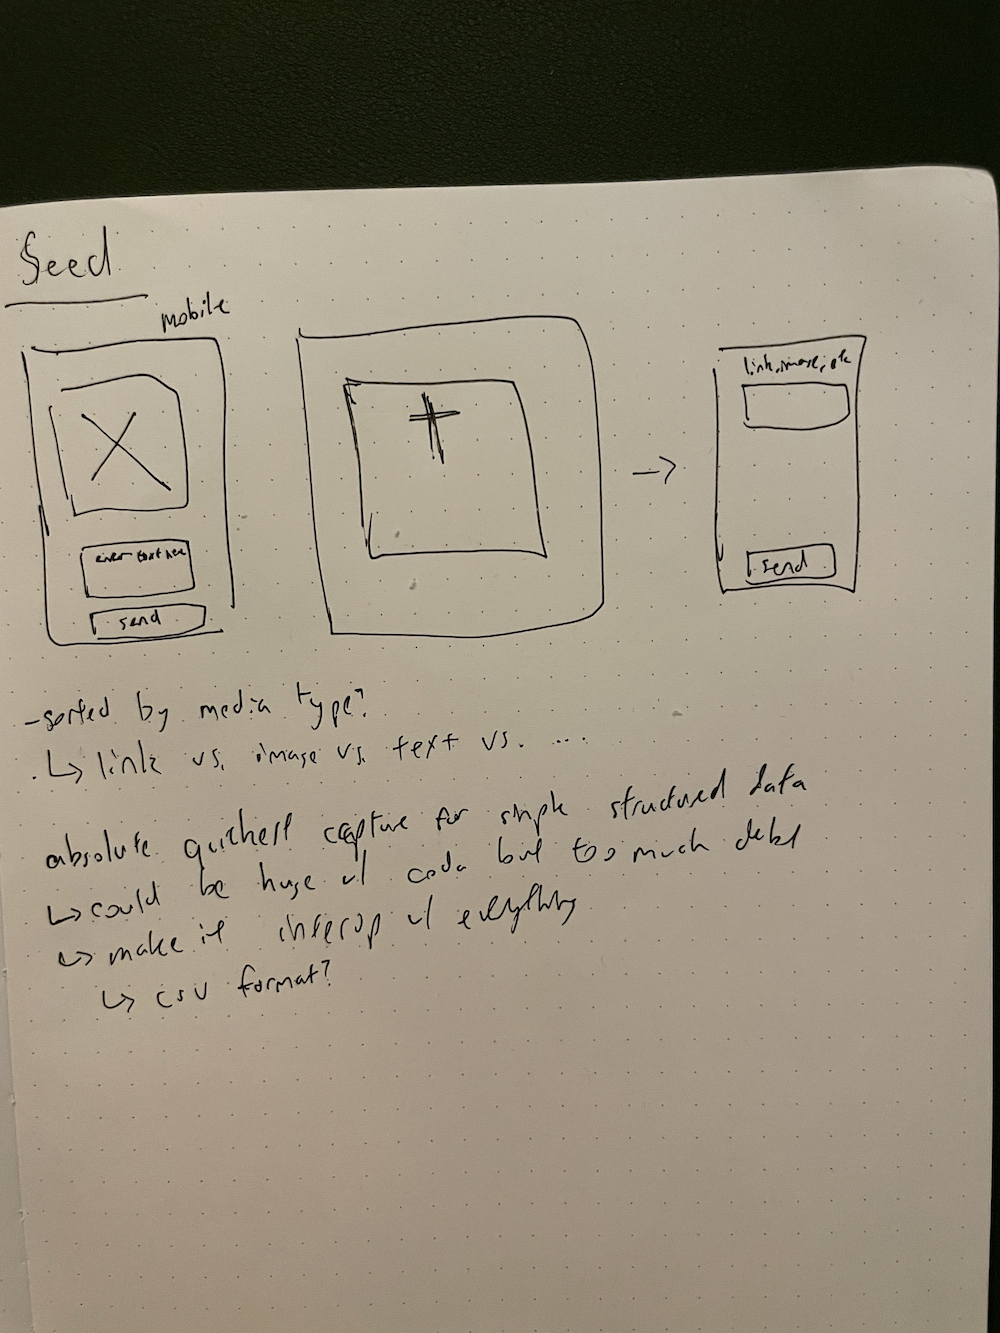 Seed
mobile
enter text here
send
link, image, etc
send
- sorted by media type?
↳ link vs. image vs. text vs. ...
absolute quickest capture for simple structured data
↳ could be huge w/ coda but too much debt
↳ make it interop w/ everything
↳ csv format?